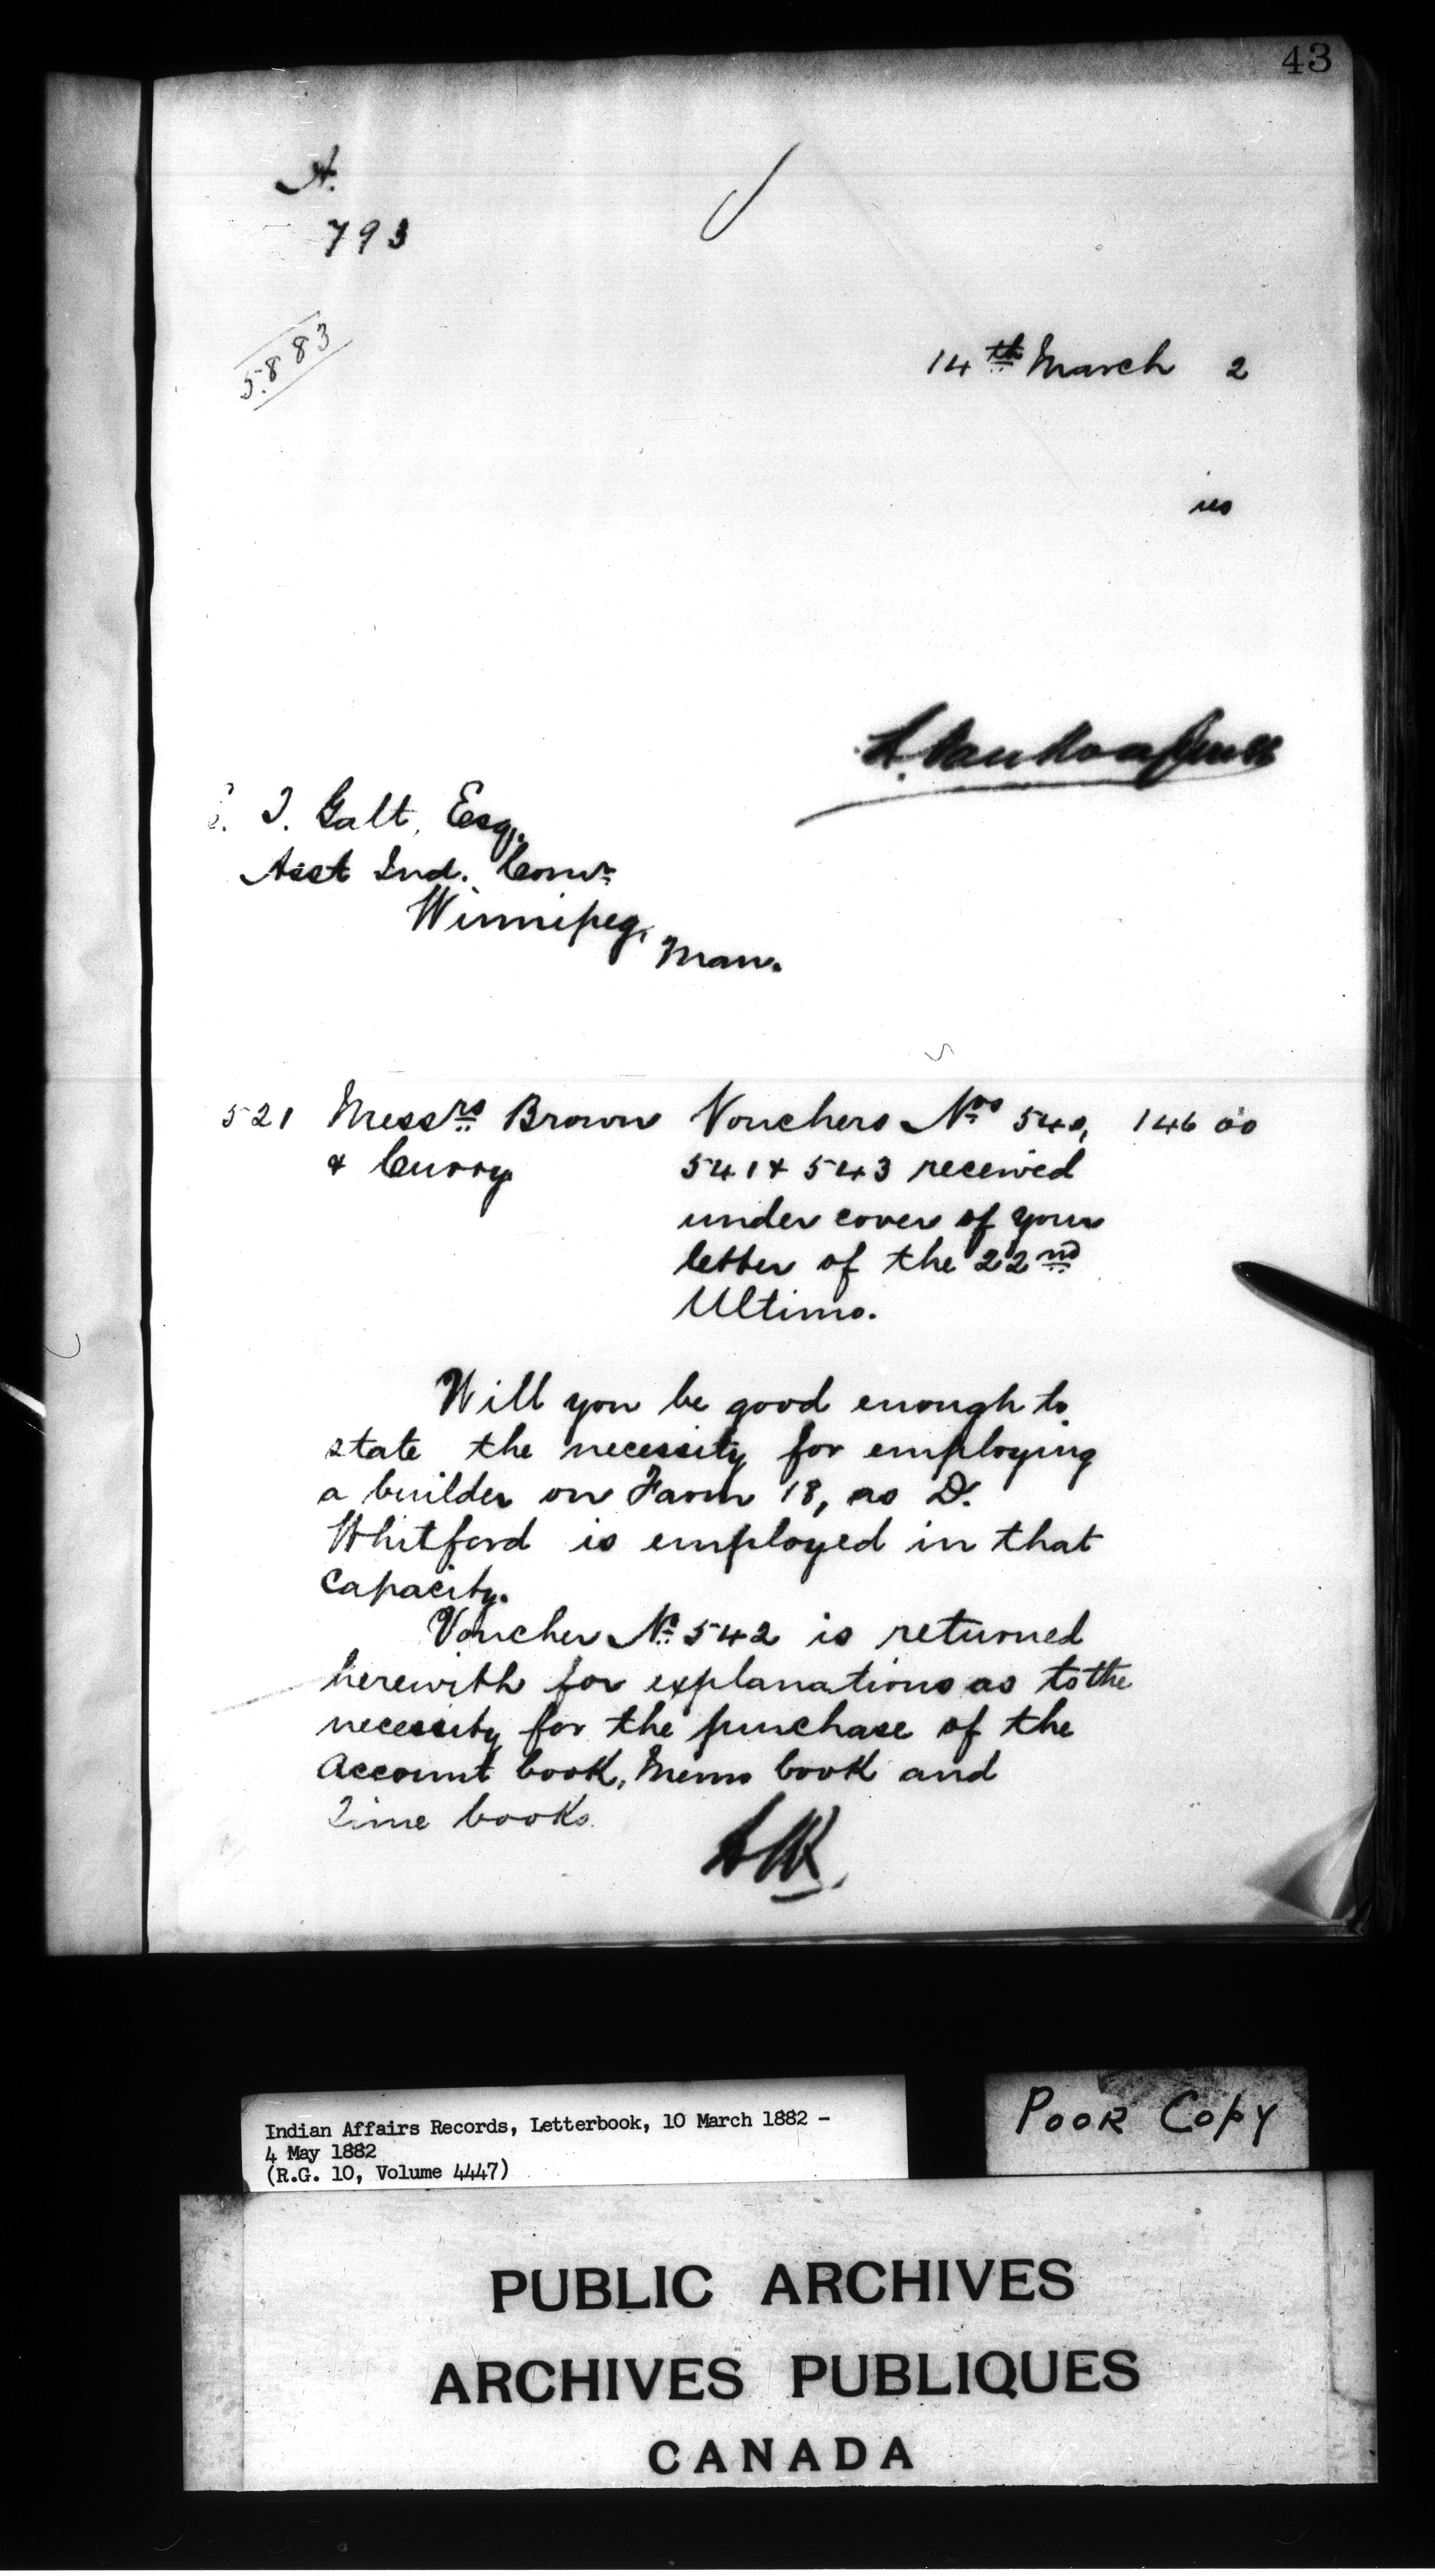 43
A.
793
5883
14th March 2
is
L. Vankoughnet
E. T. Galt, Esq.
Asst Ind. Comr
Winnipeg,
Man.
521 Messrs Brown Vouchers Nos 540, 146 00
& Curry 541 & 543 received
under cover of your
letter of the 22nd
Ultimo.
Will you be good enough to
state the necessity for employing
a builder on Farm 18, as D.
Whitford is employed in that
capacity.
Voucher No 542 is returned
herewith for explanations as to the
necessity for the purchase of the
Account book, Memo book and
Time books.
Indian Affairs Records, Letterbook, 10 March 1882 -
4 May 1882
(R.G. 10, Volume 4447)
POOR COPY
PUBLIC ARCHIVES
ARCHIVES PUBLIQUES
CANADA